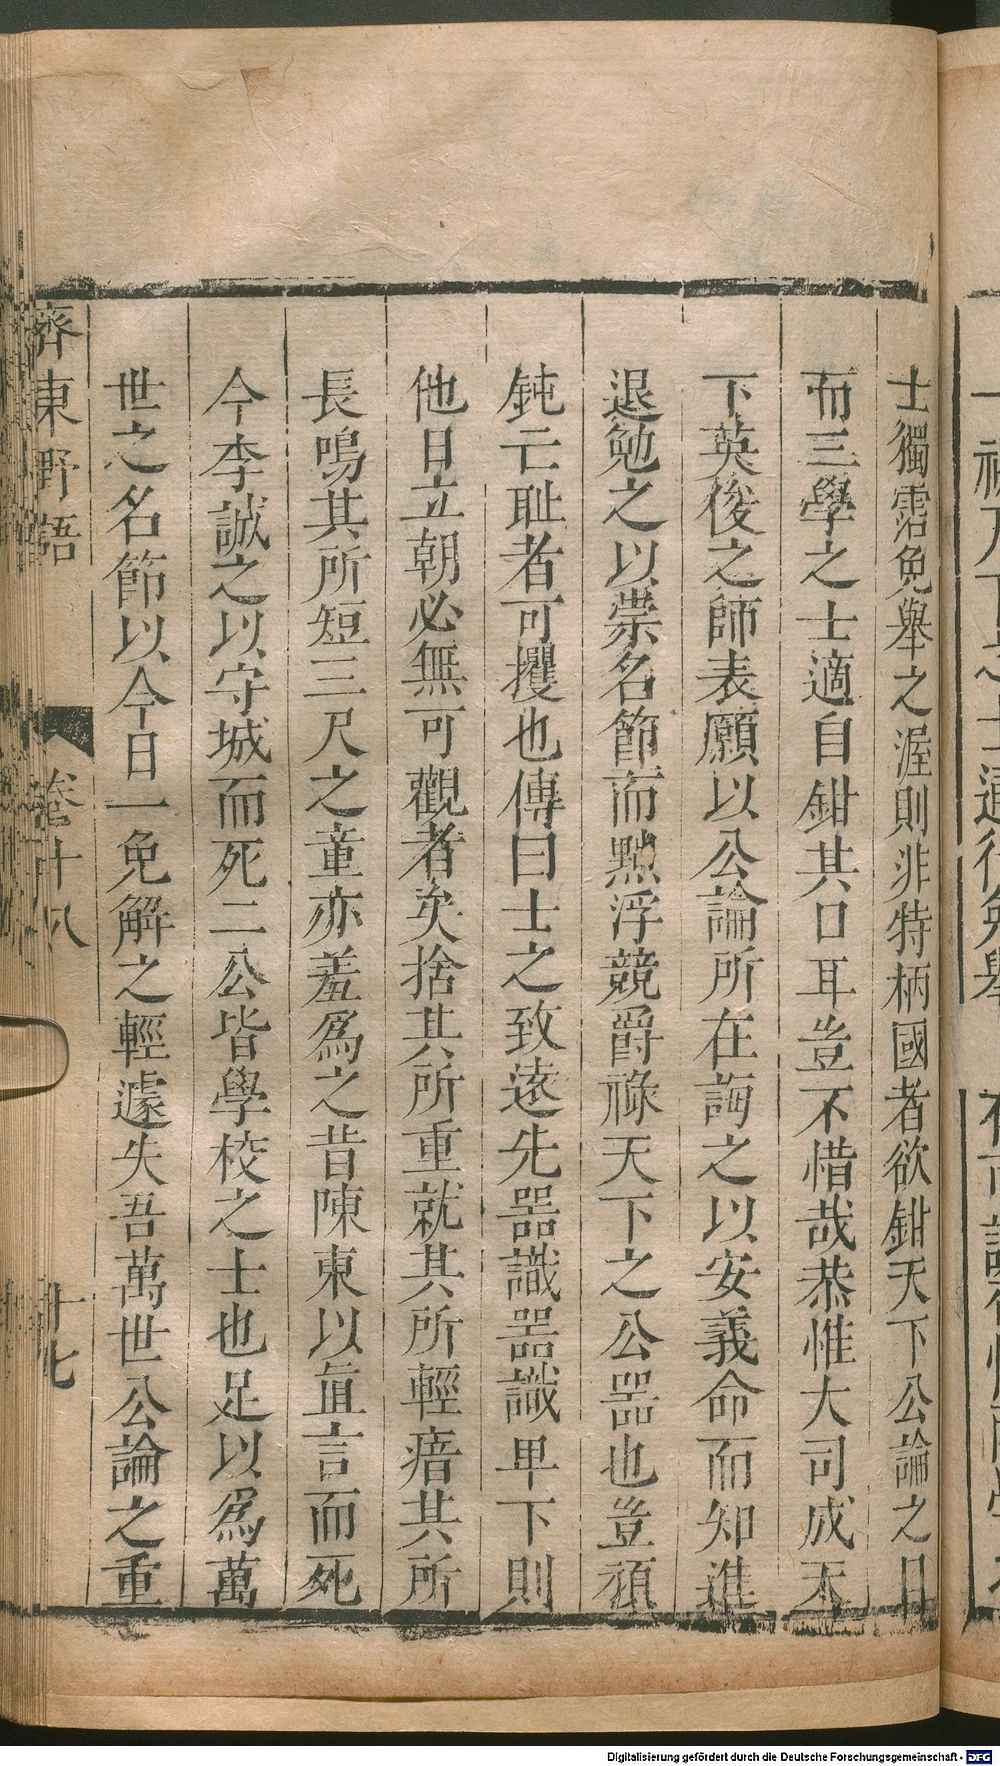 士獨霑免舉之渥則非特柄國者欲鉗天下公論之口
而三學之士適自鉗其口耳豈不惜哉恭惟大司成天
下英俊之師表願以公論所在誨之以安義命而知進
退勉之以崇名節而黜浮競爵祿天下之公器也豈頑
鈍亡耻者可攫也傳曰士之致遠先器識器識卑下則
他日立朝必無可觀者矣捨其所重就其所輕瘖其所
長鳴其所短三尺之童亦羞爲之昔陳東以直言而死
今李誠之以守城而死二公皆學校之士也足以爲萬
世之名節以今日一免解之輕遽失吾萬世公論之重
齊東野語 卷十八 十七
Digitalisierung gefördert durch die Deutsche Forschungsgemeinschaft - DFG